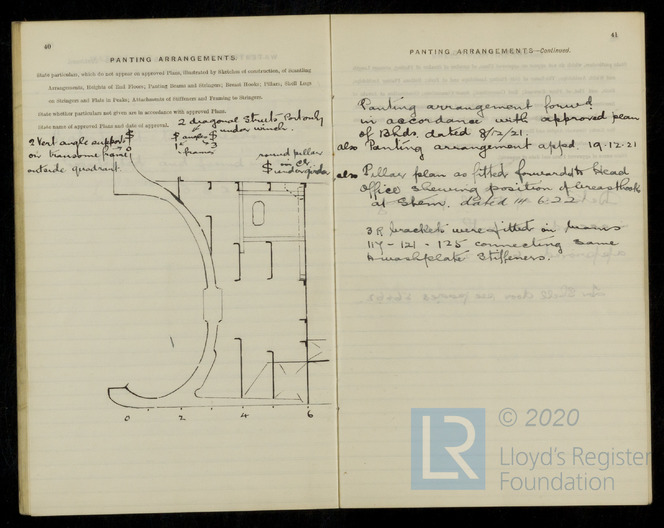 40
PANTING ARRANGEMENTS
State particulars, which do not appear on approved Plans, illustrated by Sketches of construction, of Scantling
Arrangements, Heights of End Floors; Panting Beams and Stringers; Breast Hooks; Pillars; Shell Lugs
on Stringers and Flats in Peaks; Attachments of Stiffeners and Framing to Stringers.
State whether particulars not given are in accordance with approved Plans.
State name of approved Plans and date of approval.
2 diagonal struts. Port only
under winch.
2 Vert angle supports
on transome frame
outside quadrant
frames
round pillar
in CL
under
0 2 4 6
41
PANTING ARRANGEMENTS—Continued.
Panting arrangement forwd
in accordance with approved plan
of Bhds. dated 8/12/21.
also Panting arrangement appd. 19-12-21
also Pillar plan as fitted forwarded to Head
Office shewing position of breasthooks
at Stem. dated 14.6.22
3 R brackets were fitted on beams
117 - 121 - 125 connecting same
to washplate stiffeners.
LR
© 2020
Lloyd's Register
Foundation